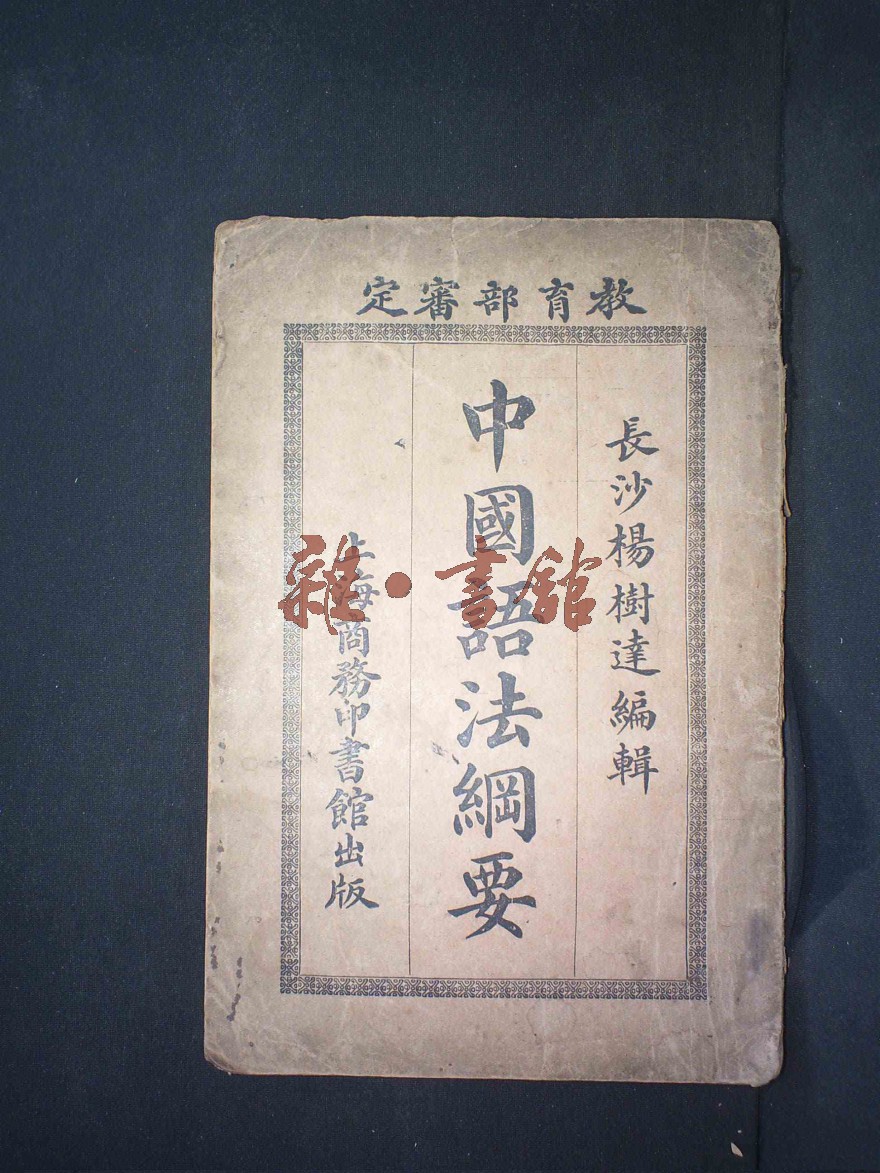 教育部審定
長沙楊樹達編輯
中國語法綱要
上海商務印書館出版
雜·書館